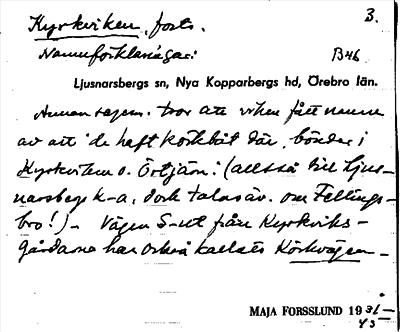 Kyrkviken, forts. 3.
Namnförklaringar: B46
Ljusnarsbergs sn, Nya Kopparbergs hd, Örebro län.
Annan sagesm. tror att viken fått namn
av att "de haft körkbåt där, bönder i
Kyrkviken o. Örtjärn: (alltså till Ljus-
narsbergs k-a, dock talas äv. om Fellings-
bro!) - Vägen S-ut från Kyrkviks-
gårdarna har också kallats Körkvägen -
MAJA FORSSLUND 1931-
43